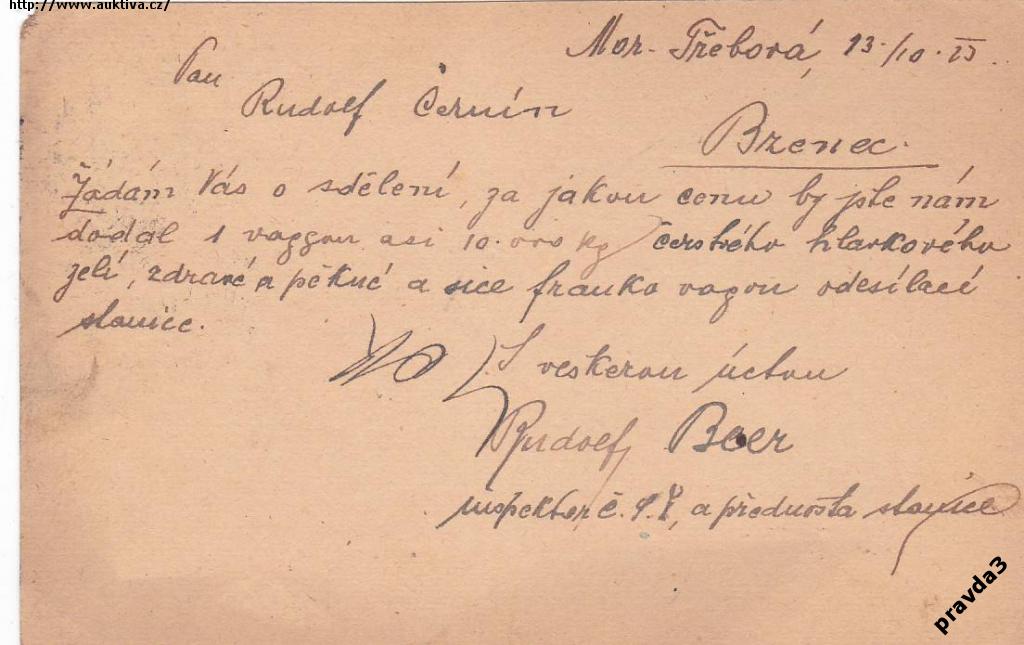 http://www.auktiva.cz/
Mor. Třebová, 13./10. 23.
Pan
Rudolf Černín
Bzenec.
Žádám Vás o sdělení, za jakou cenu by jste nám
dodal 1 vaggon asi 10.000 kg čerstvého hlavkového
zelí, zdravé a pěkné a sice franko vagon odesílací
stanice.
S veskerou úctou
Rudolf Beer
inspektor, č. s. d., a přednosta stanice
pravda3